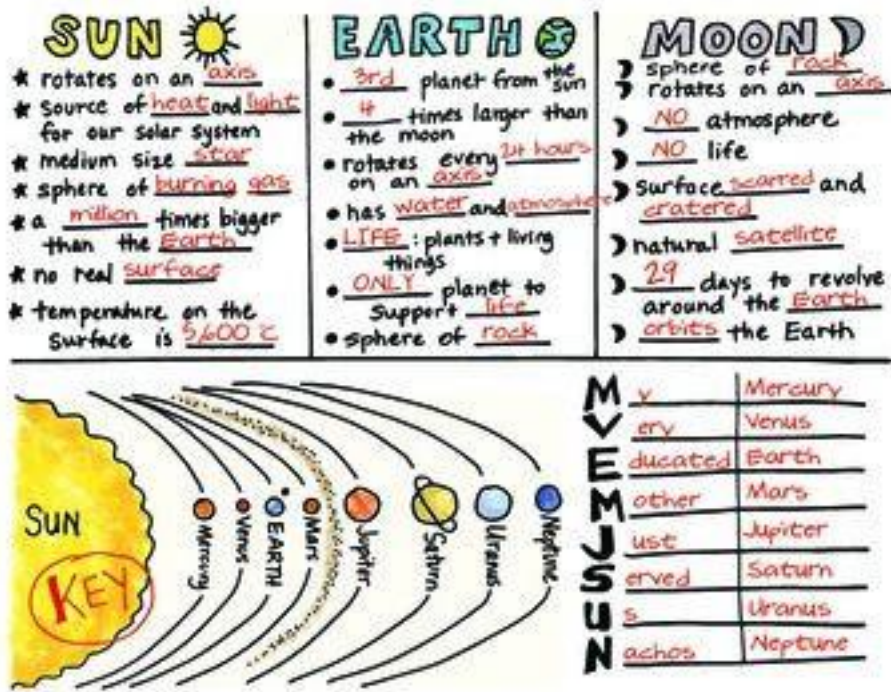 SUN
★ rotates on an axis
★ source of heat and light
for our solar system
★ medium size star
★ sphere of burning gas
★ a million times bigger
than the Earth
★ no real surface
★ temperature on the
surface is 5,600°C
EARTH
• 3rd planet from the sun
• 4 times larger than
the moon
• rotates every 24 hours
on an axis
• has water and atmosphere
• LIFE: plants + living
things
• ONLY planet to
support life
• sphere of rock
MOON
sphere of rock
rotates on an axis
NO atmosphere
NO life
surface scarred and
cratered
natural satellite
29 days to revolve
around the Earth
orbits the Earth
SUN
KEY
Mercury
Venus
EARTH
Mars
Jupiter
Saturn
Uranus
Neptune
My Mercury
Very Venus
Educated Earth
Mother Mars
Just Jupiter
Served Saturn
Us Uranus
Nachos Neptune